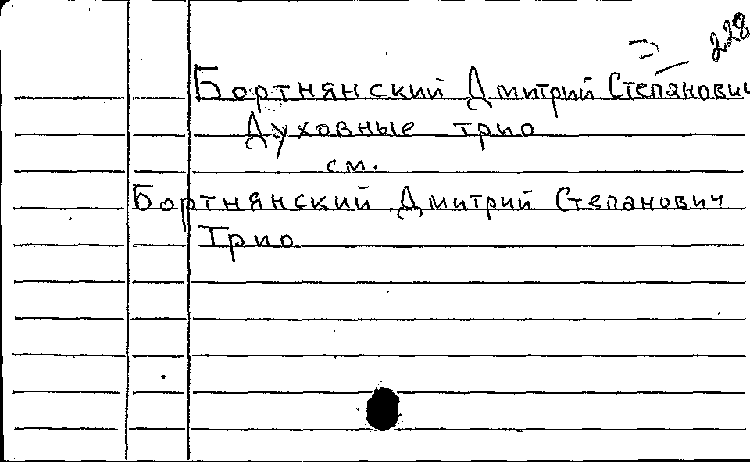 228
Бортнянский Дмитрий Степанович
Духовные трио
см.
Бортнянский Дмитрий Степанович
Трио